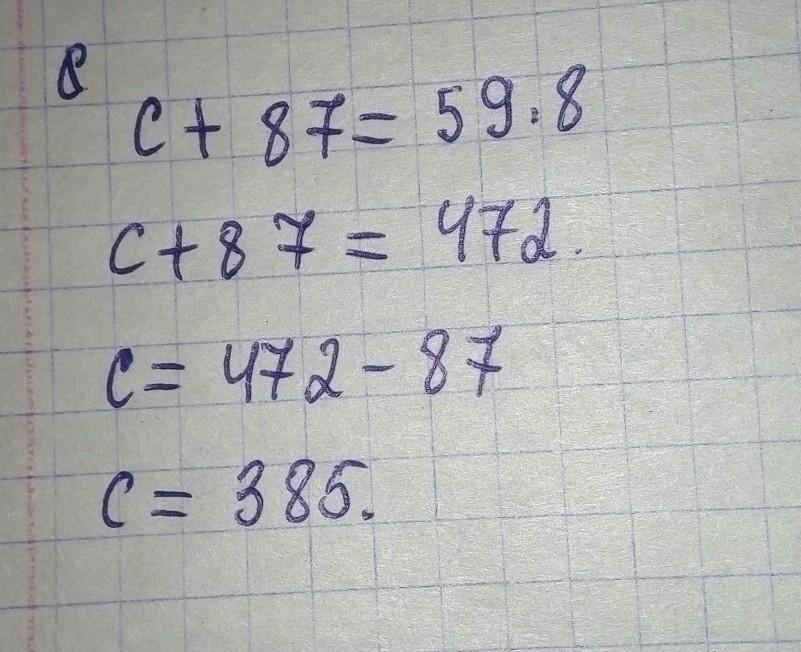 8
c + 87 = 59.8
c + 87 = 472.
c = 472 - 87
c = 385.